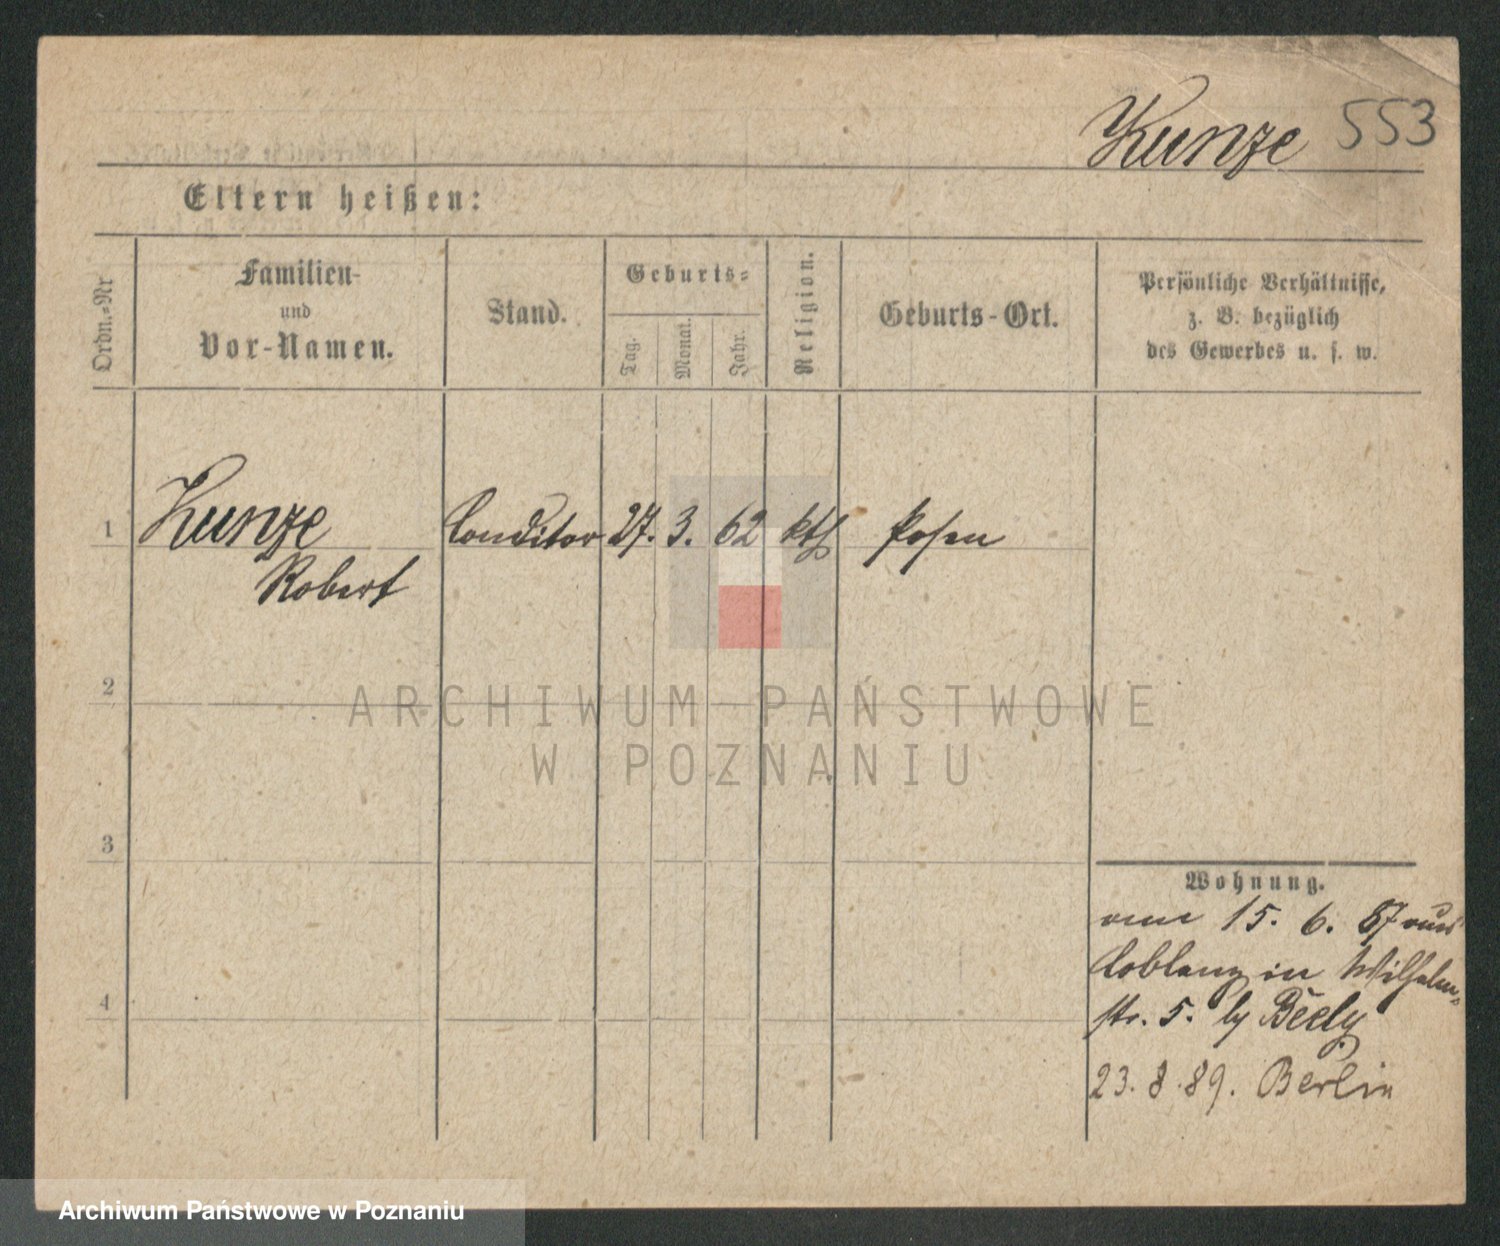 Kunze 553
Eltern heißen:
Ordn.-Nr
Familien-
und
Vor-Namen.
Stand.
Geburts-
Tag.
Monat.
Jahr.
Religion.
Geburts-Ort.
Persönliche Verhältnisse,
z. B. bezüglich
des Gewerbes u. s. w.
1 Kunze Conditor 27. 3. 62 kth Posen
Robert
2
3
4
Wohnung.
15. 6. 87 aus
Coblenz in Wilhelm-
str. 5. by Beely
23. 8. 89. Berlin
ARCHIWUM PAŃSTWOWE
W POZNANIU
Archiwum Państwowe w Poznaniu